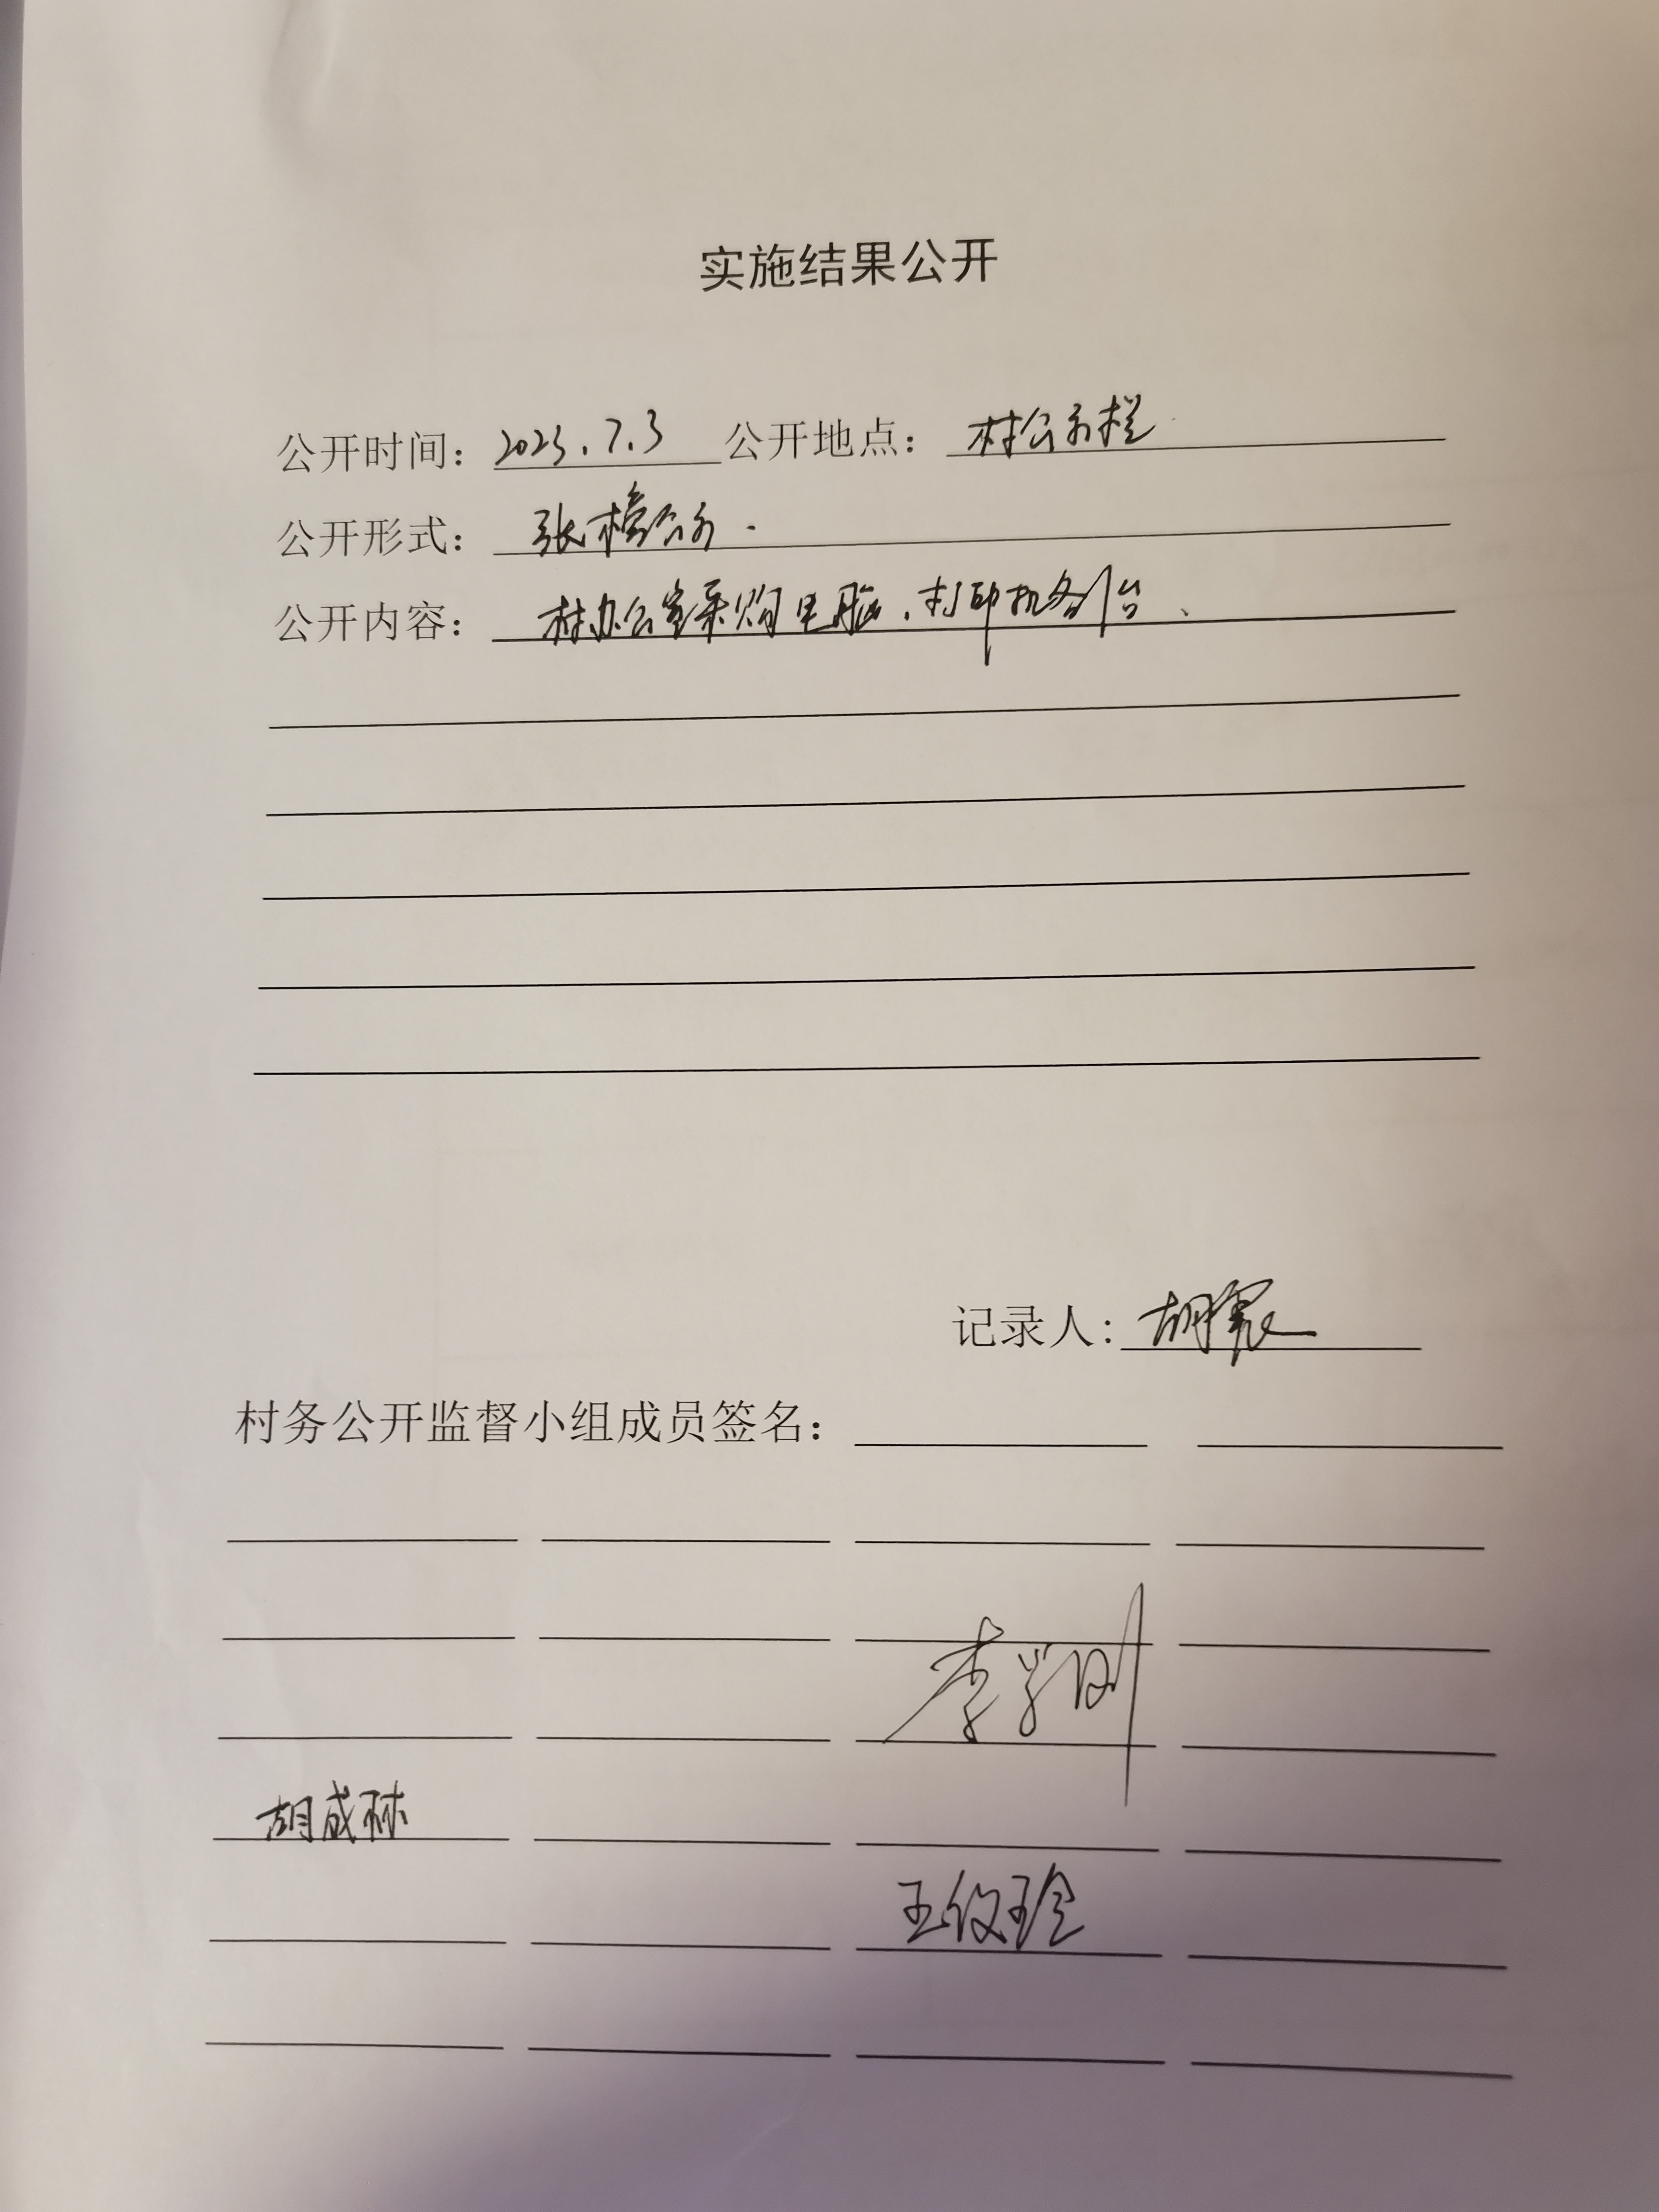 实施结果公开
公开时间：2023.7.3 公开地点：村公示栏
公开形式：张榜公示.
公开内容：村办公室采购电脑、打印机各1台、
记录人：胡
村务公开监督小组成员签名：
李学刚
胡成林
王仪